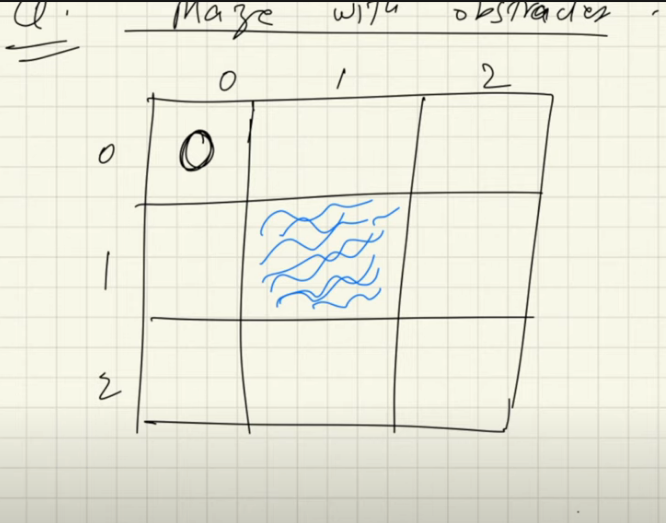 Q. Maze with obstracles .
0 1 2
0 O
1
2